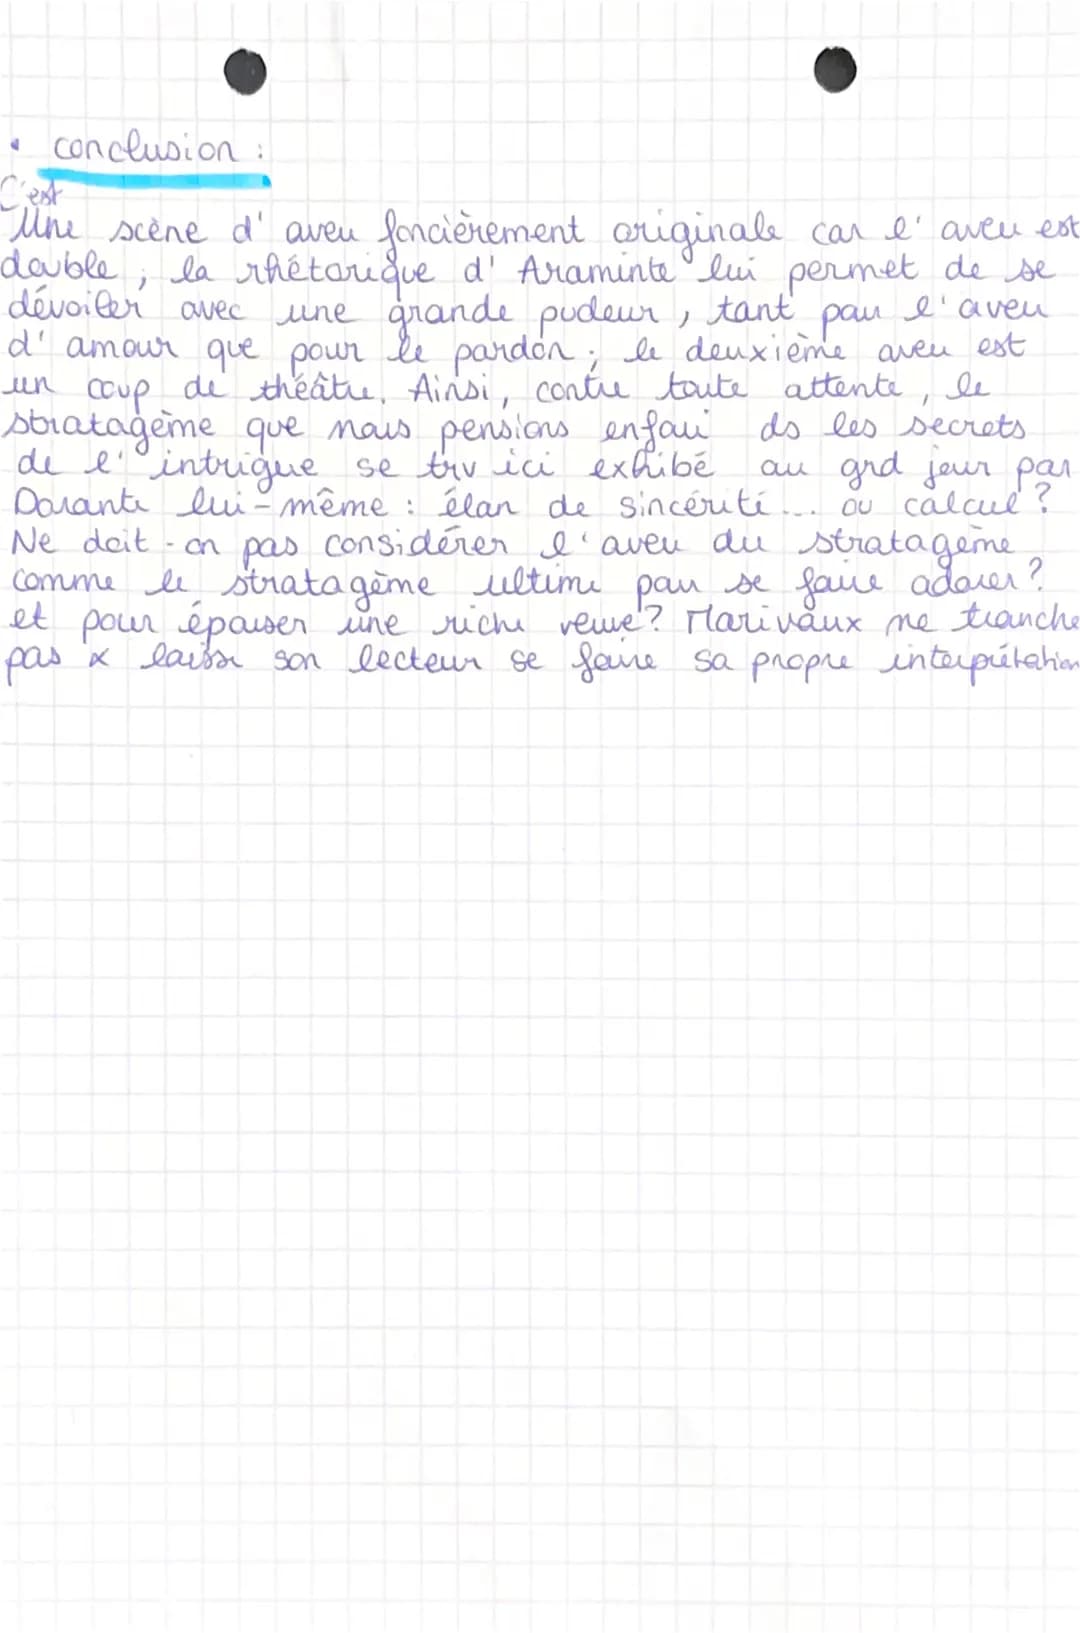 • conclusion :
C'est
Une scène d'aveu foncièrement originale car l'aveu est
double ; la rhétorique d'Araminte lui permet de se
dévoiler avec une grande pudeur, tant pour l'aveu
d'amour que pour le pardon ; le deuxième aveu est
un coup de théâtre. Ainsi, contre toute attente, le
stratagème que nous pensions enfoui ds les secrets
de l'intrigue se trv ici exhibé au grd jour par
Dorante lui-même : élan de sincérité... ou calcul ?
Ne doit-on pas considérer l'aveu du stratagème
comme le stratagème ultime pour se faire adorer ?
et pour épouser une riche veuve ? Marivaux ne tranche
pas & laisse son lecteur se faire sa propre interprétation